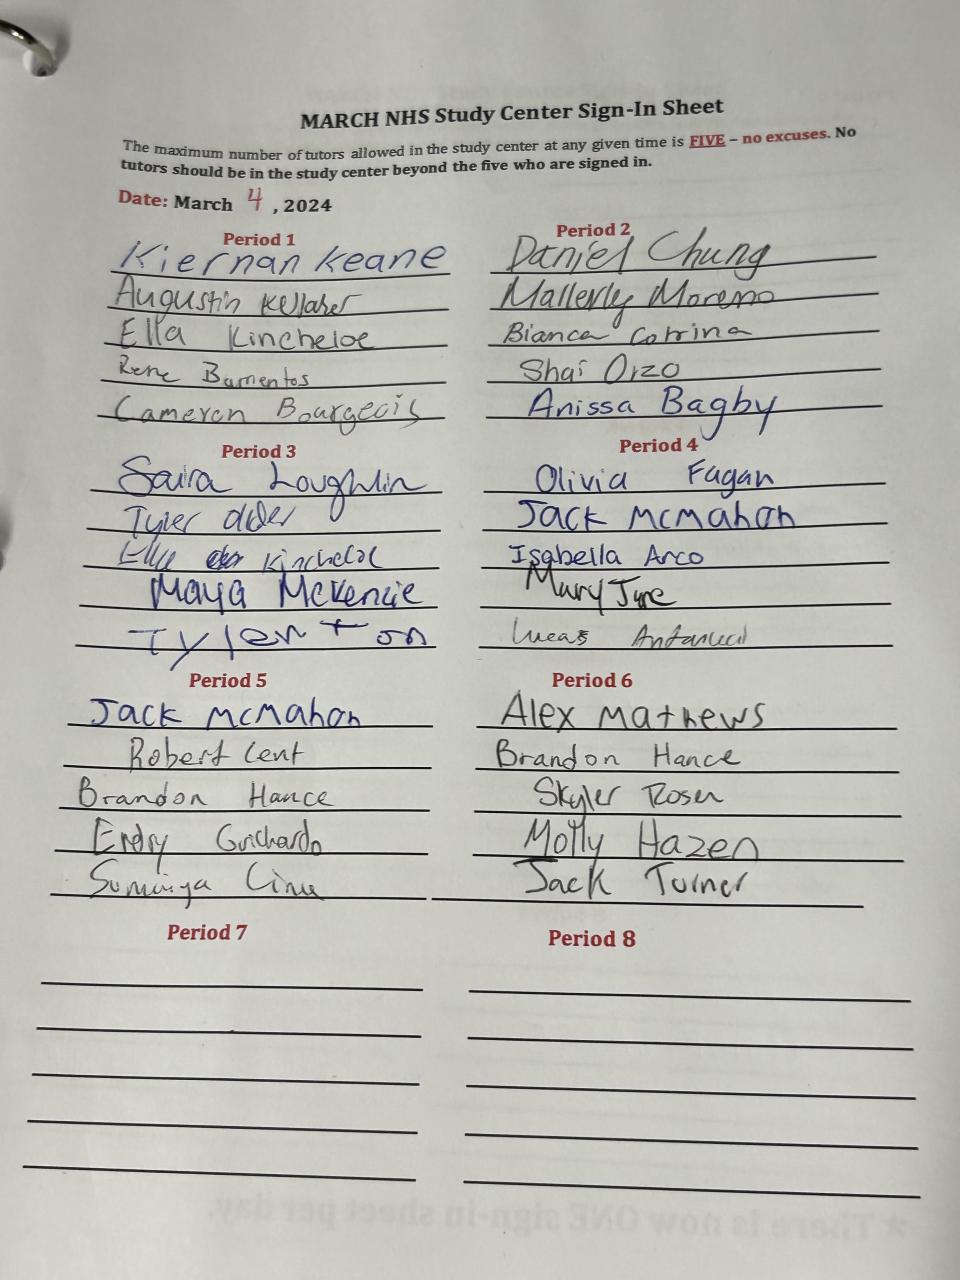 MARCH NHS Study Center Sign-In Sheet
The maximum number of tutors allowed in the study center at any given time is FIVE – no excuses. No
tutors should be in the study center beyond the five who are signed in.
Date: March 4, 2024
Period 1
Kiernan Keane
Augustin Kellaher
Ella Kincheloe
Rene Barrientos
Cameron Bourgeois
Period 2
Daniel Chung
Mallerly Moreno
Bianca Cotrina
Shai Orzo
Anissa Bagby
Period 3
Saira Loughlin
Tyler
Kincheloe
Maya McKenzie
Tylen
Period 4
Olivia Fagan
Jack McMahon
Isabella Arco
Mary
Lucas
Period 5
Jack McMahon
Robert Cent
Brandon Hance
Endry Guichardo
Period 6
Alex Mathews
Brandon Hance
Skyler Rosen
Molly Hazen
Jack Turner
Period 7
Period 8
★ There is now ONE sign-in sheet per day.